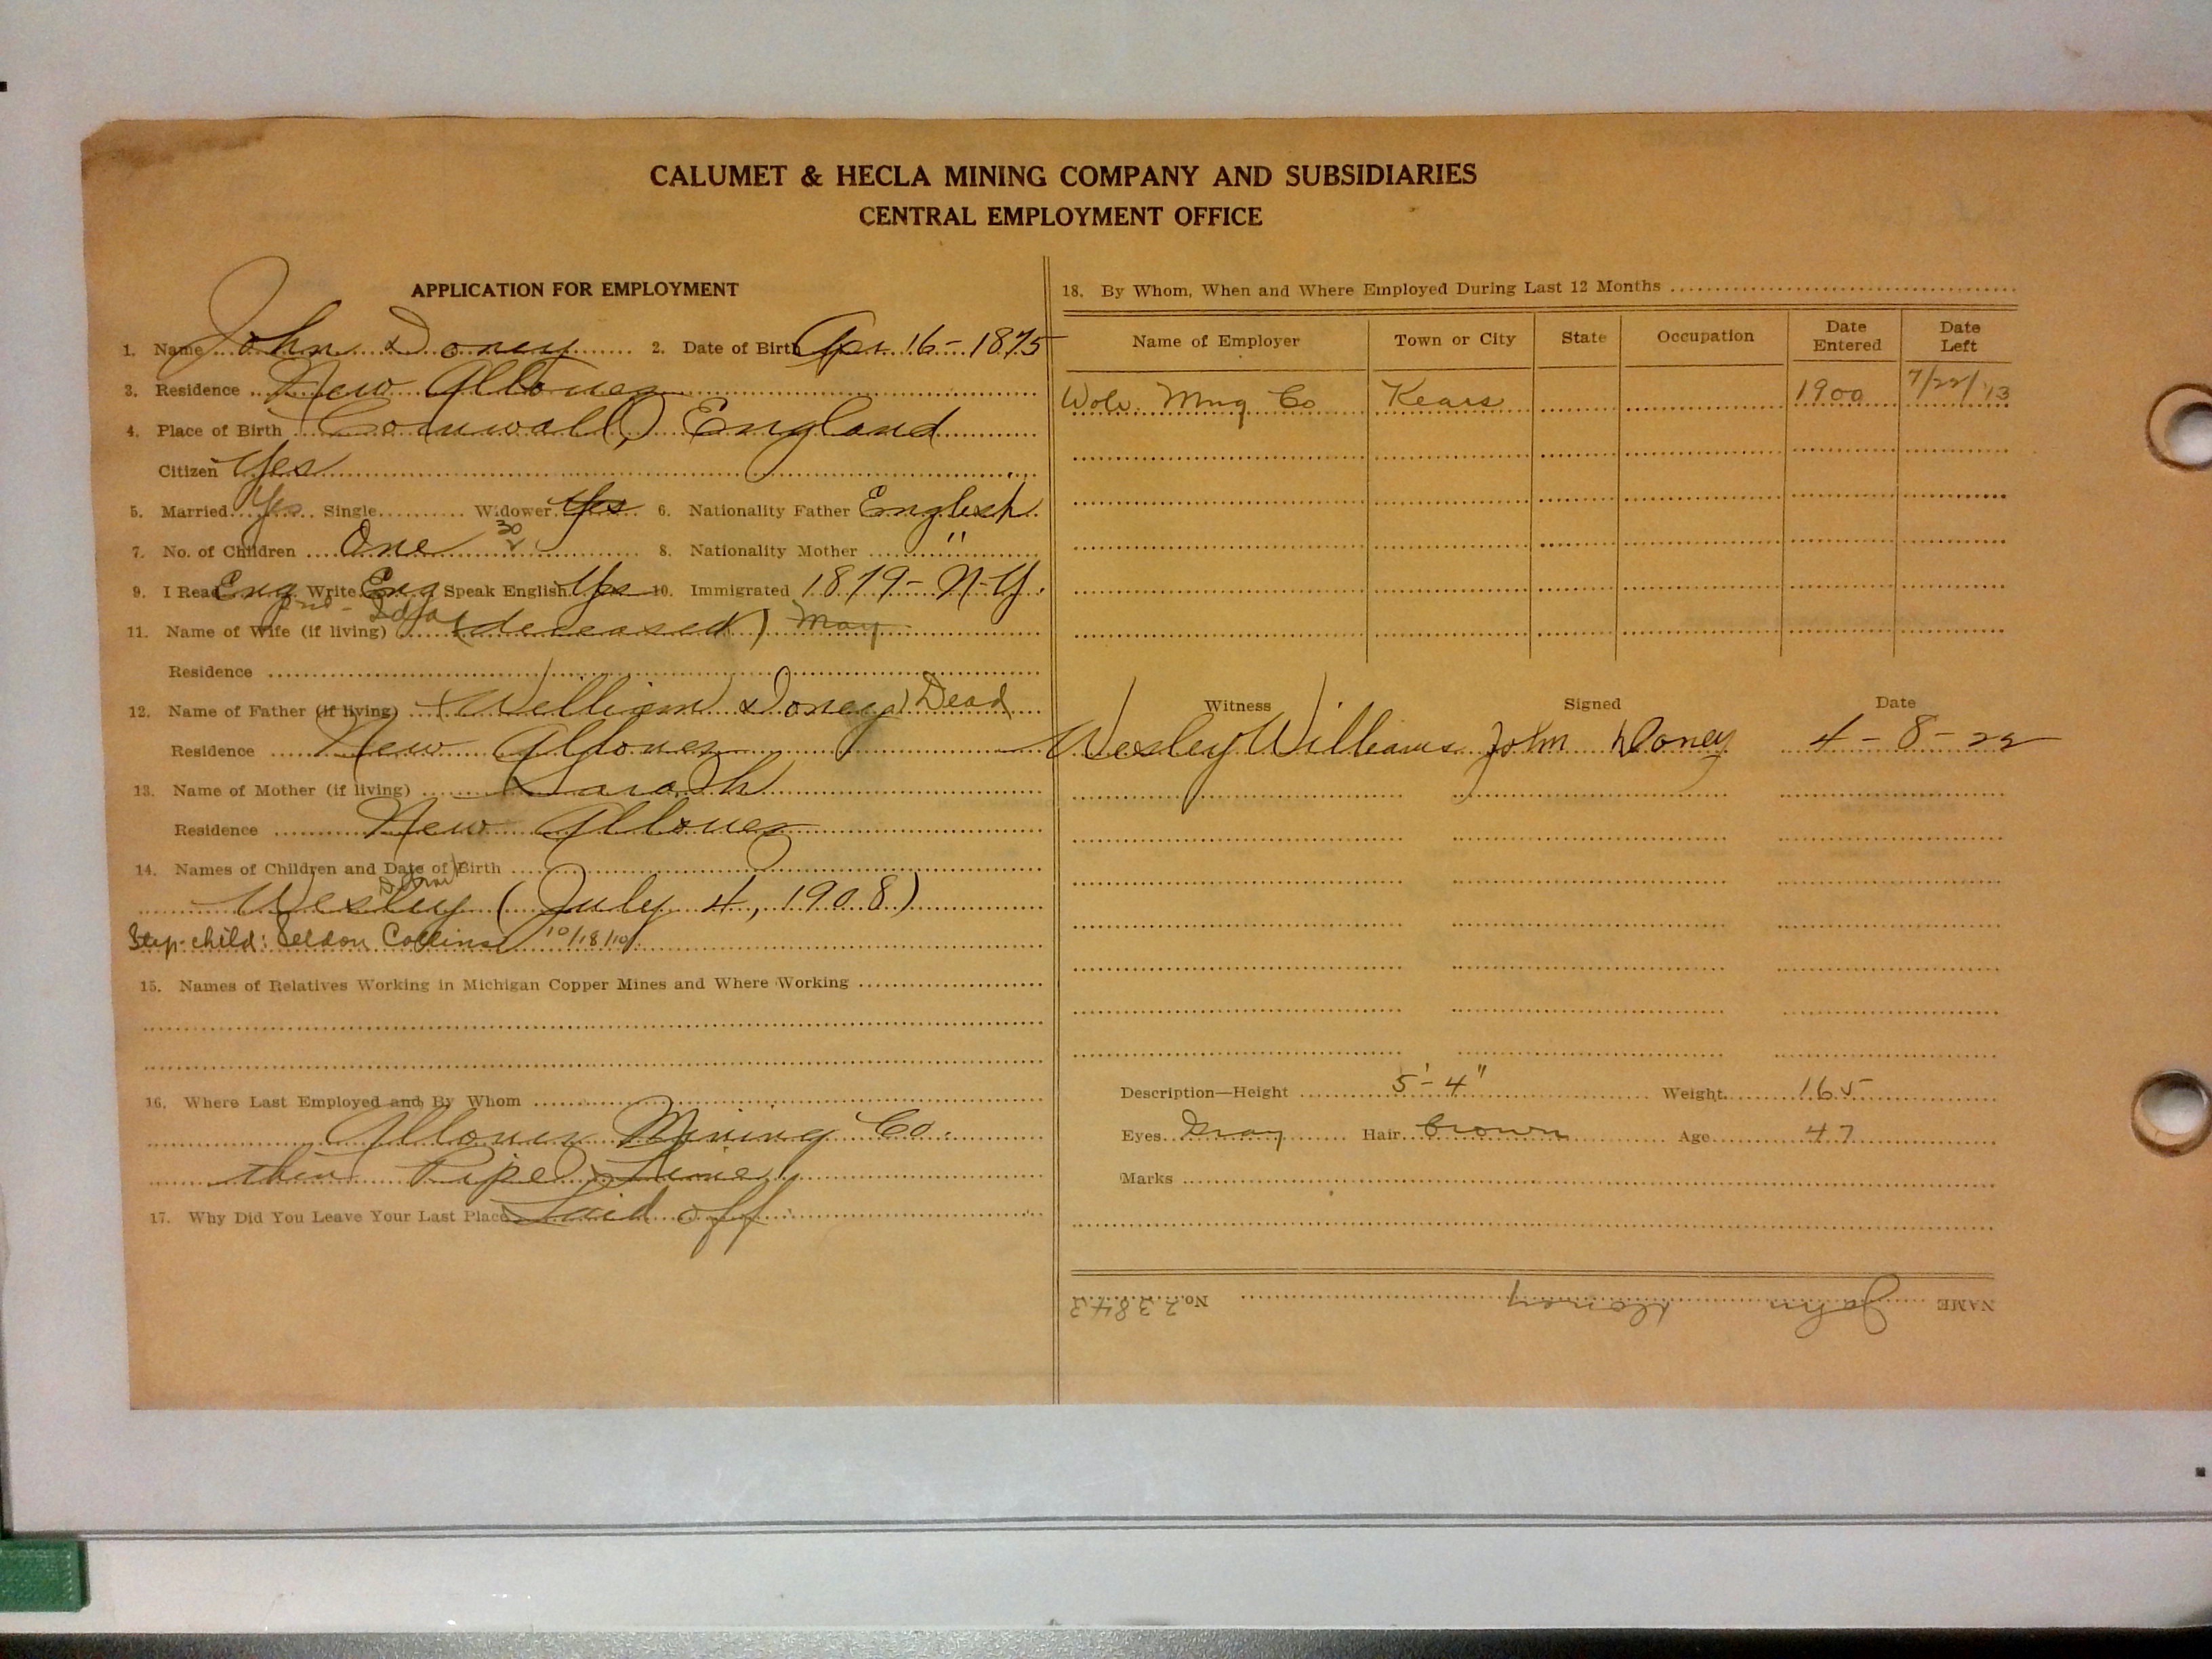 CALUMET & HECLA MINING COMPANY AND SUBSIDIARIES
CENTRAL EMPLOYMENT OFFICE
APPLICATION FOR EMPLOYMENT
1. Name John Doney 2. Date of Birth Apr. 16 - 1875
3. Residence New Allouez
4. Place of Birth Cornwall, England
Citizen Yes
5. Married Yes Single Widower Yes 6. Nationality Father English
7. No. of Children One 8. Nationality Mother "
9. I Read Eng. Write Eng Speak English Yes 10. Immigrated 1879 - N.Y.
11. Name of Wife (if living) (deceased) May
Residence
12. Name of Father (if living) (William Doney) Dead
Residence New Allouez
13. Name of Mother (if living) Sarah
Residence New Allouez
14. Names of Children and Date of Birth
Wesley (July 4, 1908)
Step-child: Seldon Collins 10/18/10
15. Names of Relatives Working in Michigan Copper Mines and Where Working
16. Where Last Employed and By Whom
Allouez Mining Co.
then Pipe Line
17. Why Did You Leave Your Last Place Laid off
18. By Whom, When and Where Employed During Last 12 Months
Name of Employer Town or City State Occupation Date Entered Date Left
Wolv. Mng Co Kears 1900 7/22/13
Witness Signed Date
Wesley Williams John Doney 4-8-22
Description—Height 5'-4" Weight 165
Eyes Gray Hair brown Age 47
Marks
NAME John Doney No. 23843